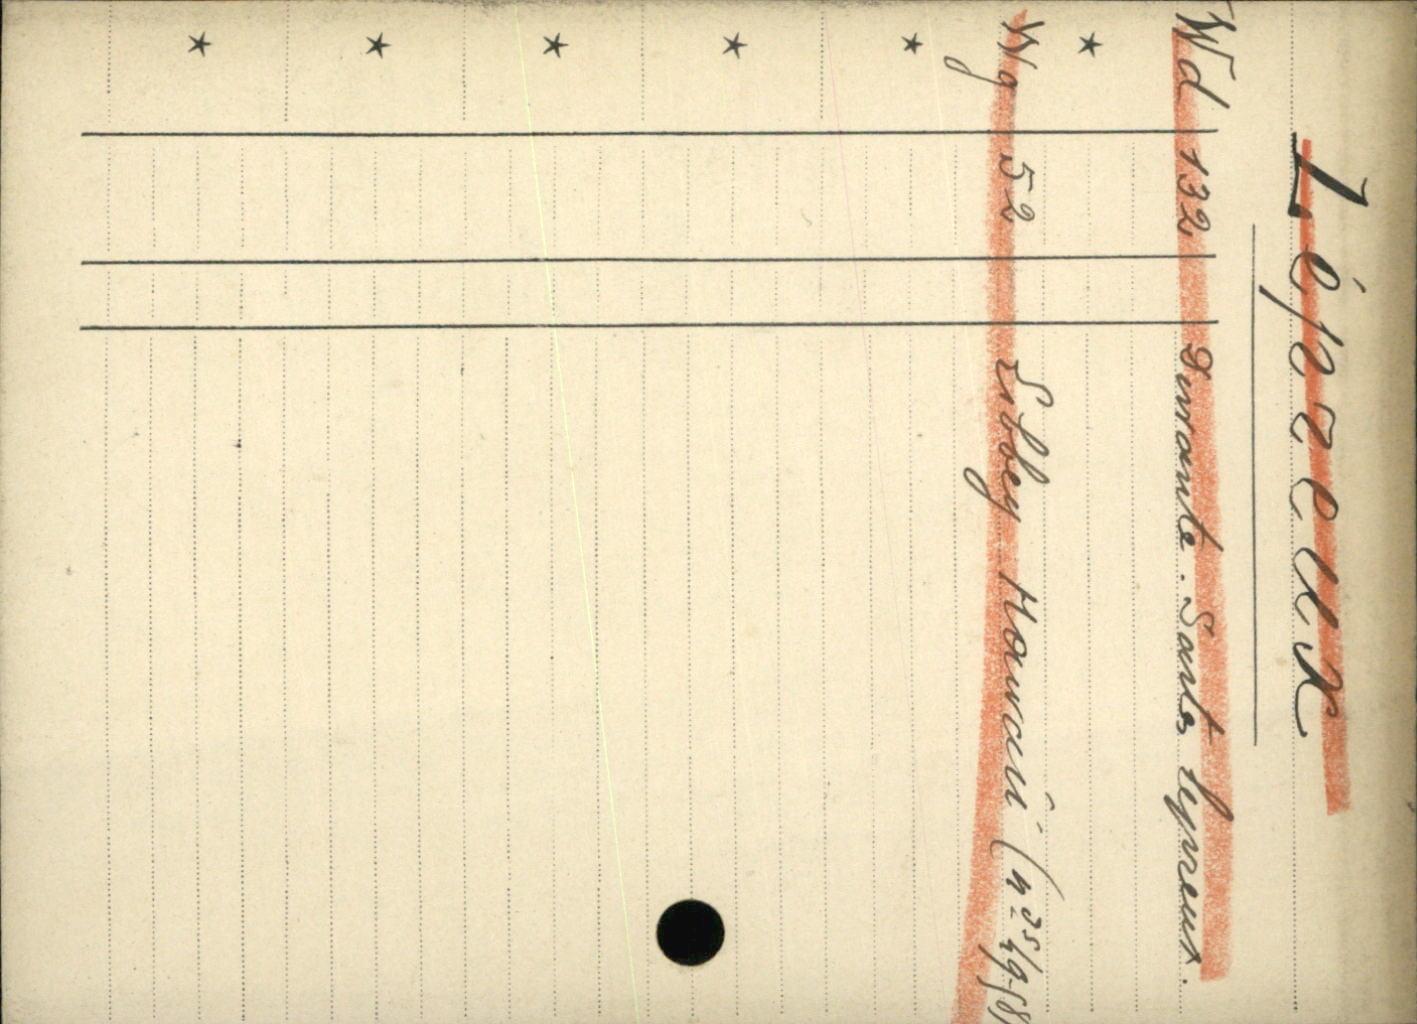 Lépreux
Wd 132 Durante. Sartes lepreux.
Wg 52 Libbey Hawaii (nos 49-58)